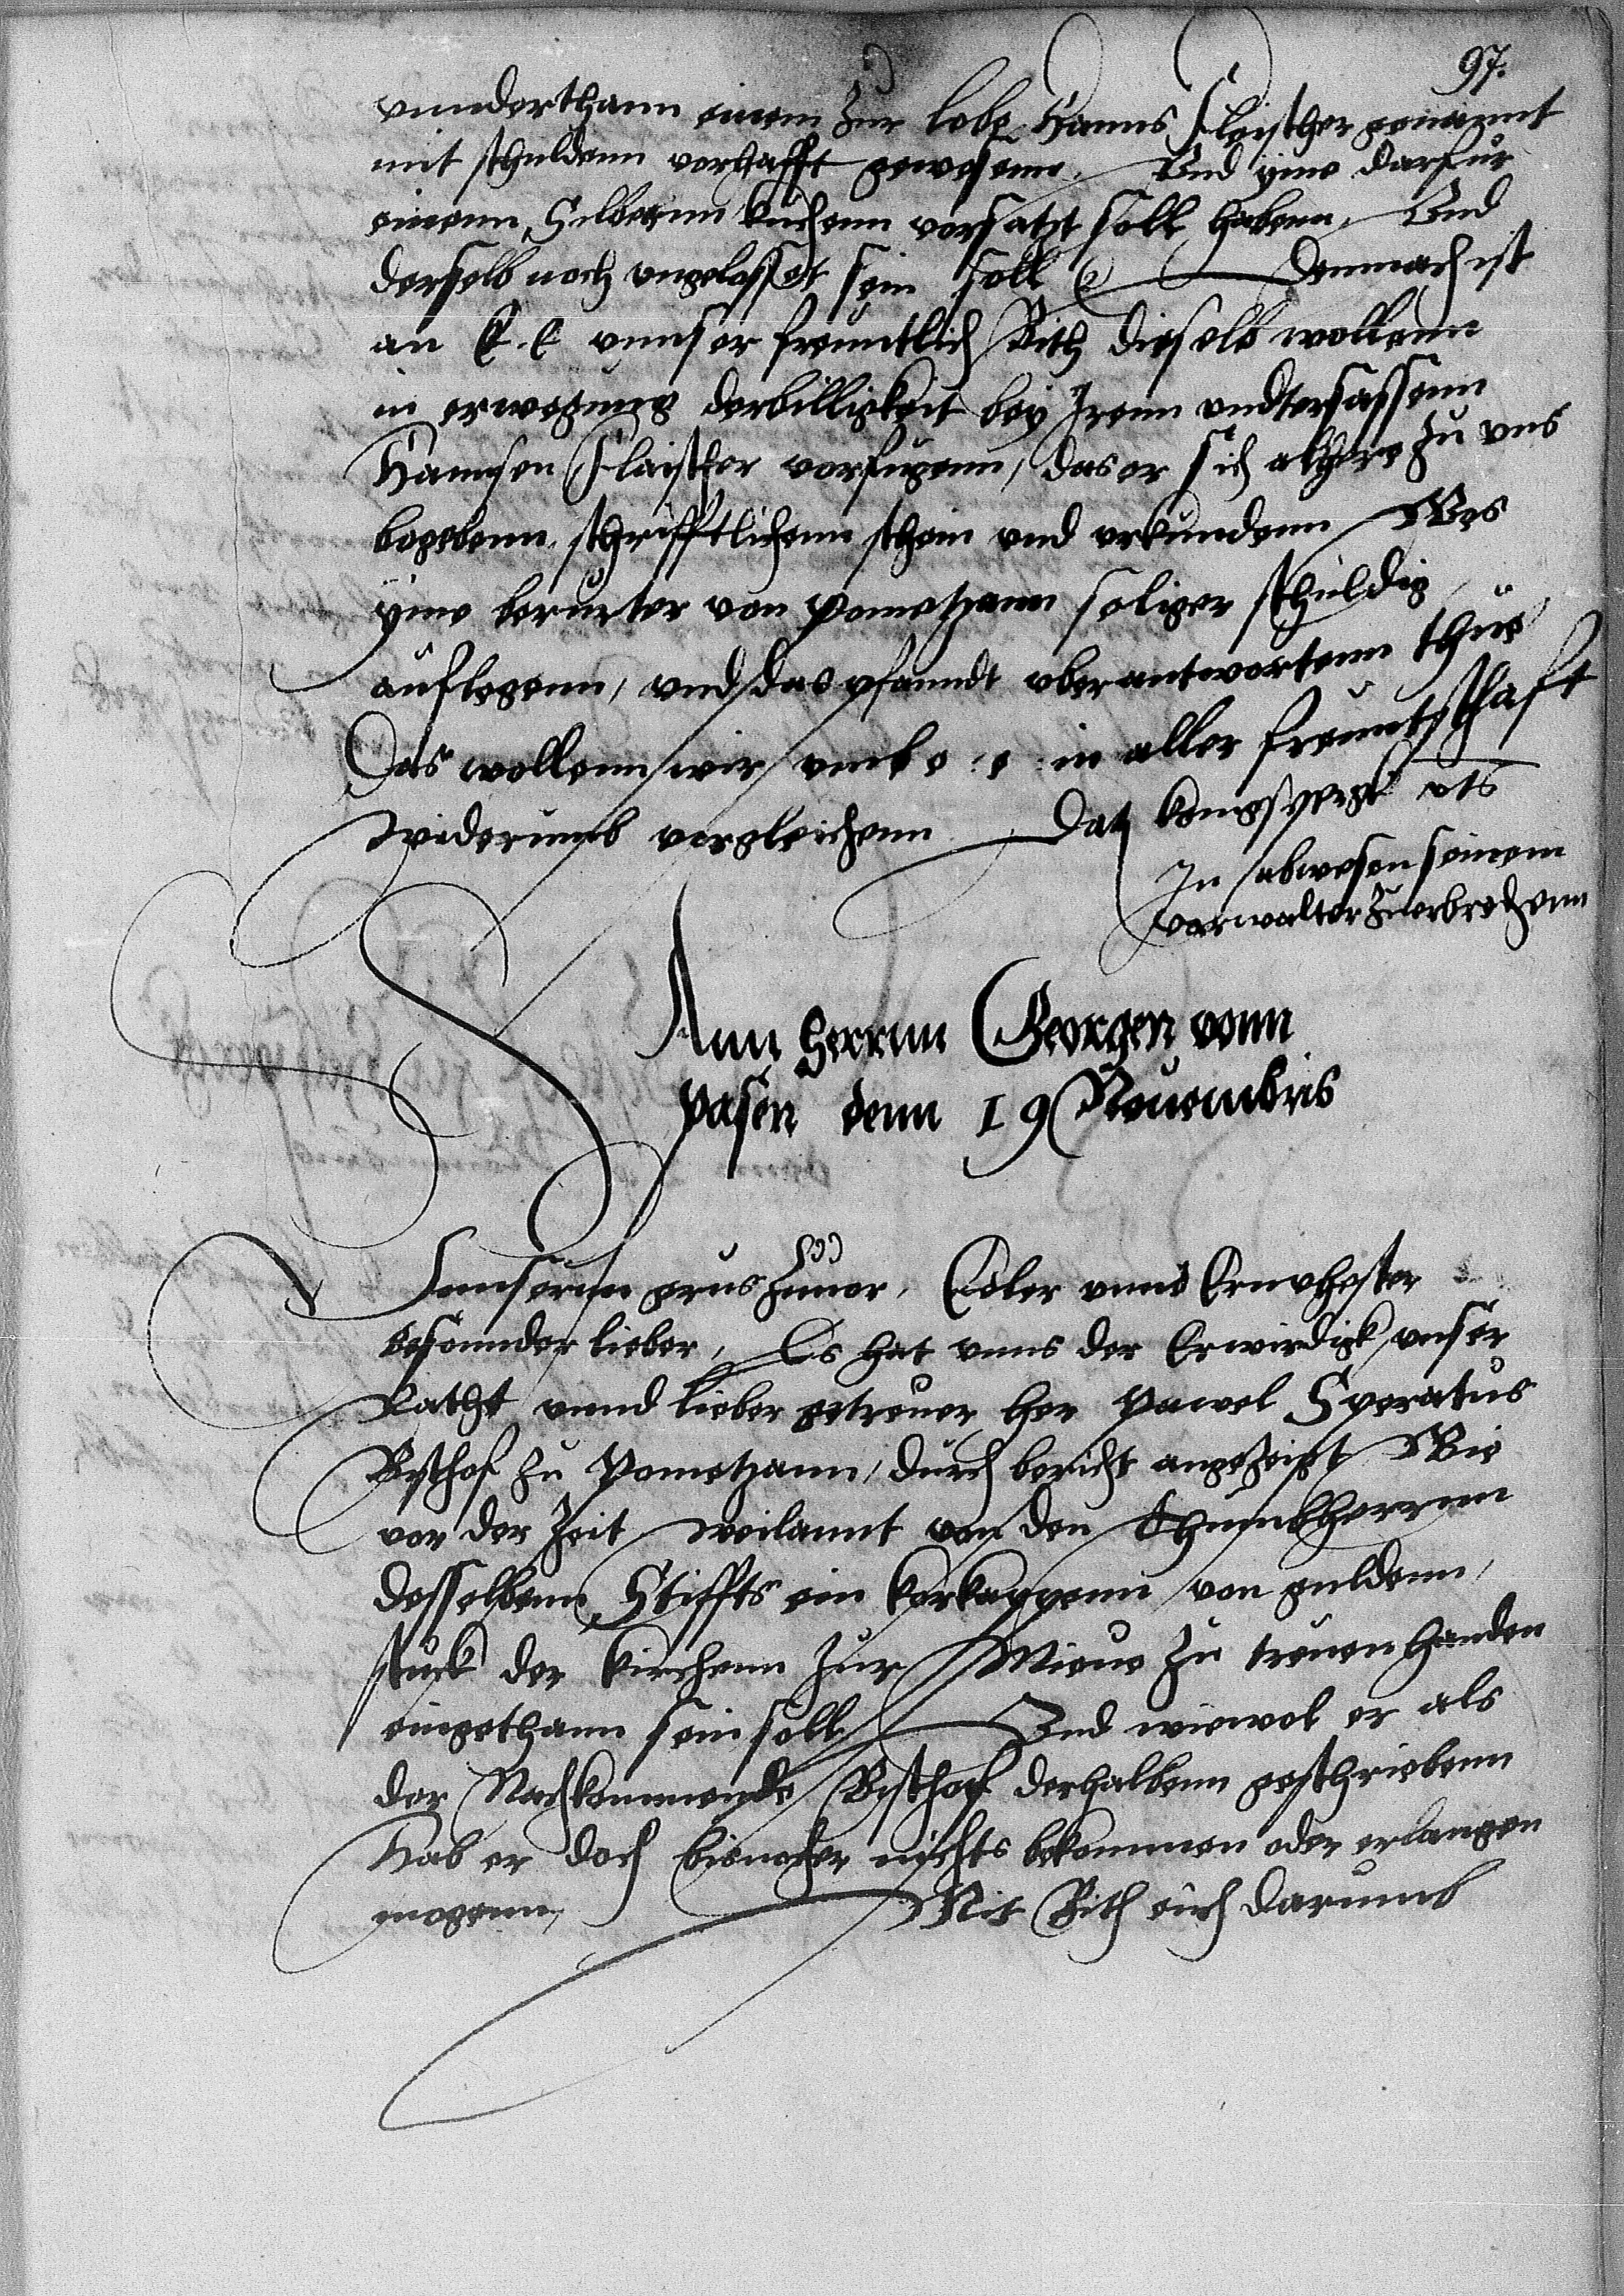 97.
vnnderthann einem Zur lobe Hanns Fleischer genannt
mit schuldenn verhafft gewesenn, Vnd yme darfur
einenn Silberenn kuchenn versatzt soll habenn, Vnd
derselb noch vngelosset sein soll Demnach ist
an E. L vnnser freuntlich Bith dieselb wollenn
in erwegung der billigkeit bey Irenn vndtersassenn
Hannsen Fleischer verfugenn, das er sich alhere zu vns
begebenn, schrifftlichenn schein vnd vrkundenn Wes
yme berurter von Pometzann seliger schuldig,
auflegenn, vnd das pfanndt vberantwortenn thue
Das wollenn wir vmb e. l. in aller freuntschaft
widerumb vergleichenn Datz konigsperg uts
In abwesen seinem
verwalter zuerbrechenn
Ann Herrnn Georgen vonn
Pasen denn 19 Nouembris
Vnnsernn grus zuuor, Edler vnnd Ernuhester
besonnder lieber, Es hat vnns der Erwirdigk vnser
Rathe vnnd lieber getreuer, her Pawel Speratus
Bischof zu Pometzann, durch bericht angezeigt Wie
vor der Zeit weilannt von den Thumbherrnn
desselbenn Stiffts ein korkappenn von guldenn,
stuck der kirchenn zur Mieue zu treuen handen
eingethann sein soll Vnd wiewol er als
der Nachkommende Bischof derhalbenn geschriebenn
Hab er doch bisnoher nichts bekommen oder erlangen
mogenn, Mit Bith euch darumb